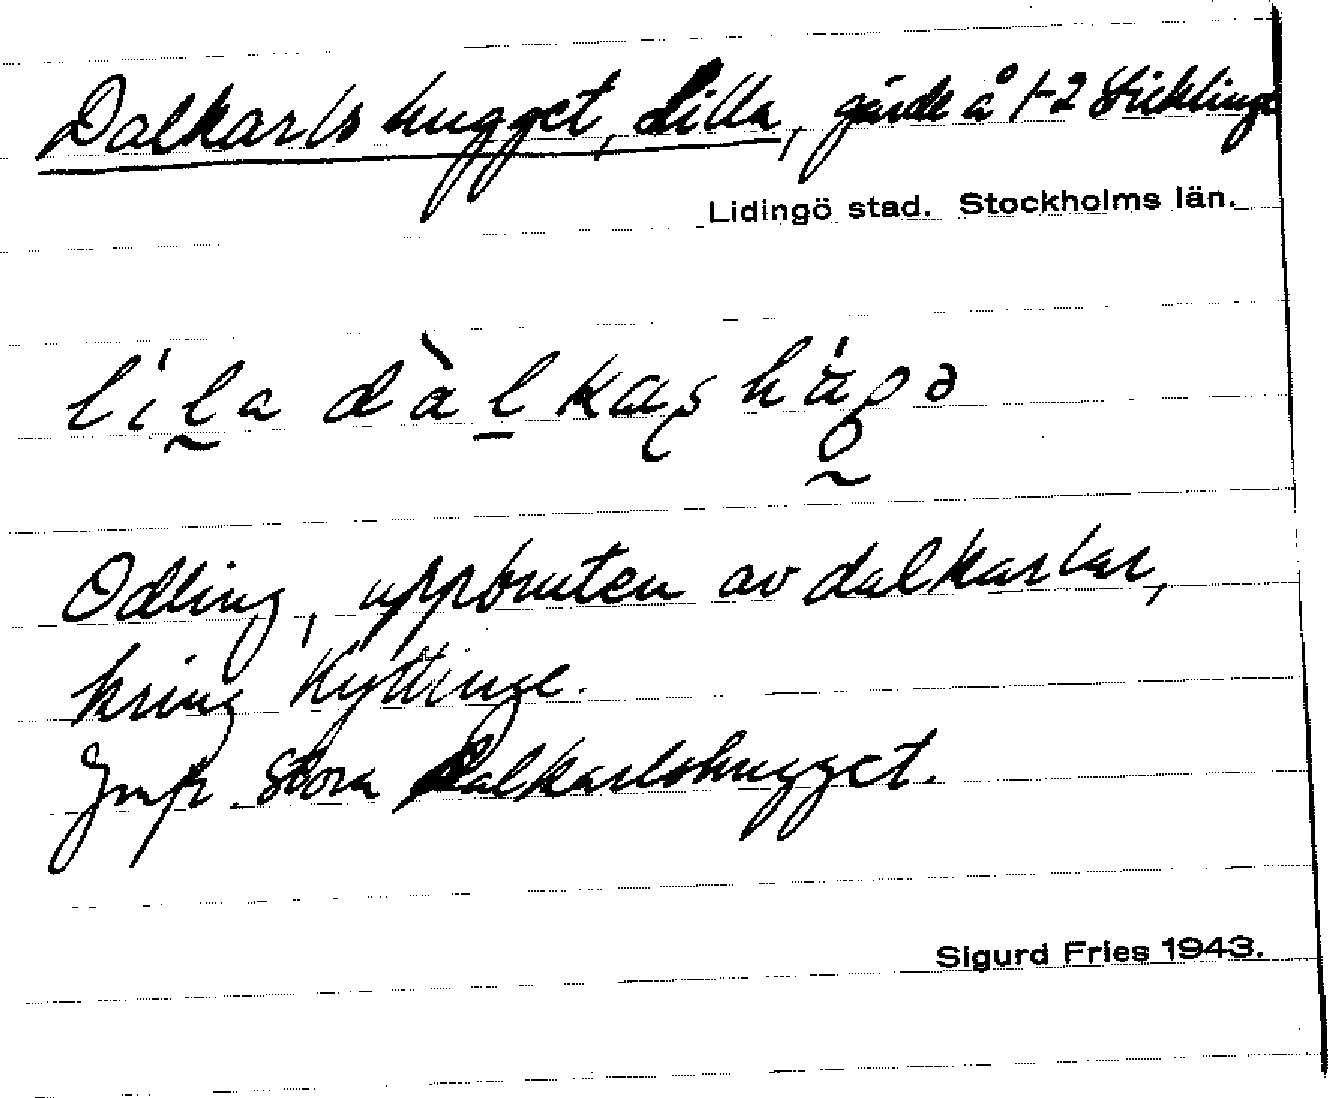 Dalkarlshugget, Lilla, gärde å 1-2 Sicklinge
Lidingö stad. Stockholms län.
Odling, uppbruten av dalkarlar,
kring Kyttinge.
Jmfr Stora Dalkarlshugget.
Sigurd Fries 1943.